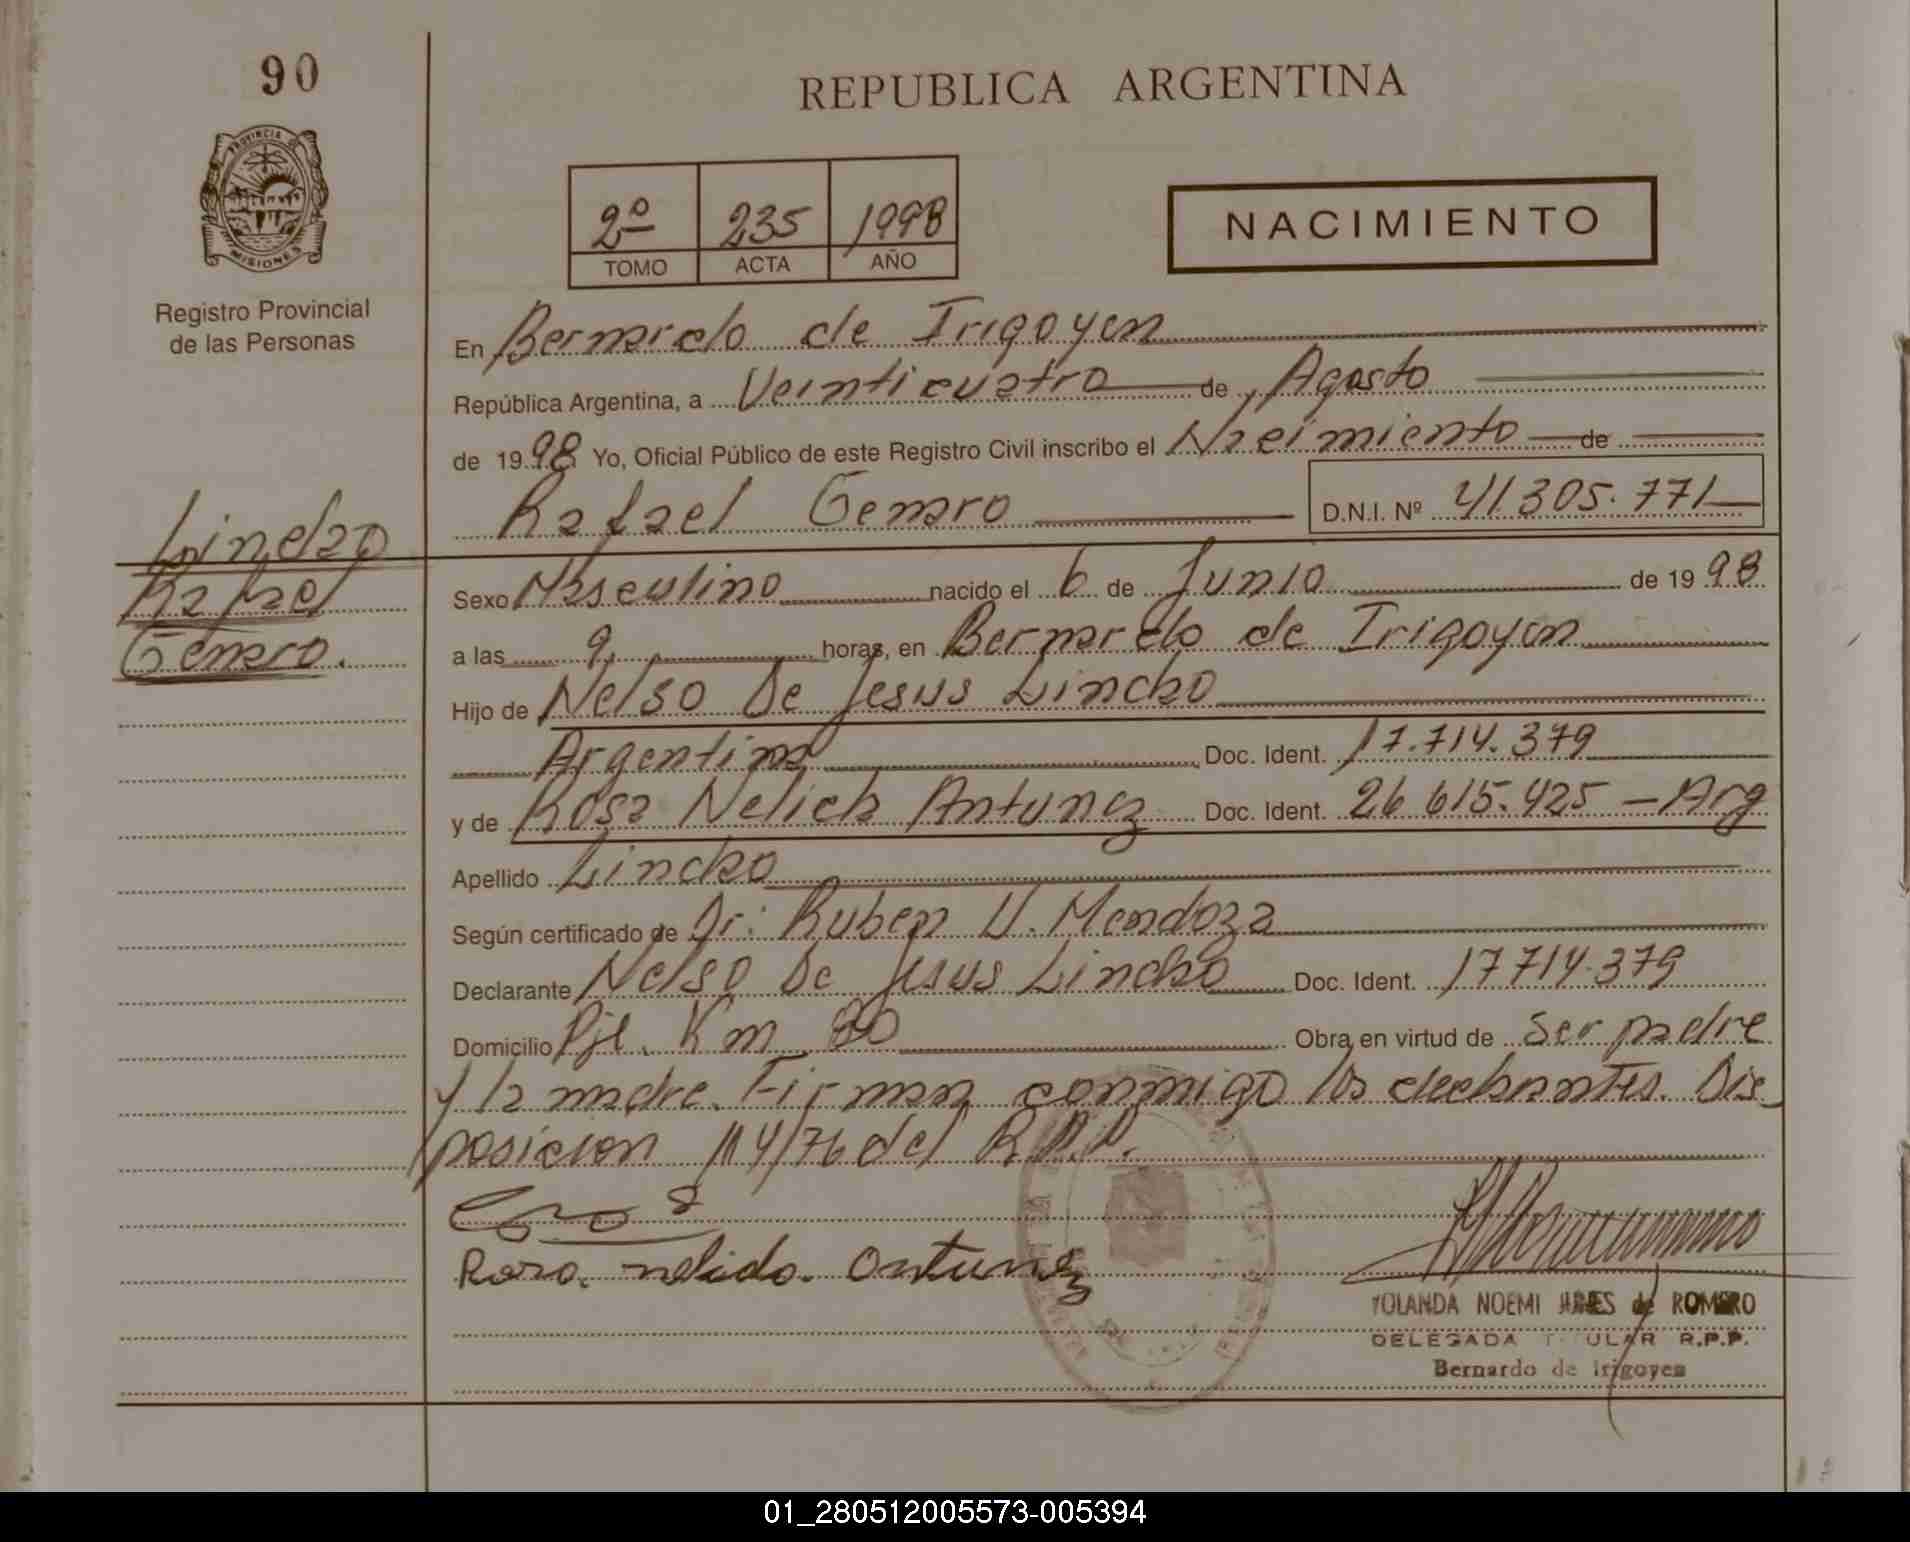 90
REPUBLICA ARGENTINA
PROVINCIA DE
MISIONES
Registro Provincial
de las Personas
2º 235 1998
TOMO ACTA AÑO
NACIMIENTO
En Bernardo de Irigoyen
República Argentina, a Veinticuatro de Agosto
de 1998 Yo, Oficial Público de este Registro Civil inscribo el Nacimiento de
Rafael Genaro D.N.I. Nº 41.305.771
Lindao
Rafael
Genaro.
Sexo Masculino nacido el 6 de Junio de 1998
a las 9, horas, en Bernardo de Irigoyen
Hijo de Nelso De Jesus Lindao
Argentina Doc. Ident. 17.714.379
y de Rosa Nelida Antunez Doc. Ident. 26 615.425 - Arg
Apellido Lindao
Según certificado de Dr: Ruben V. Mendoza
Declarante Nelso De Jesus Lindao Doc. Ident. 17714.379
Domicilio Pje. Km Obra en virtud de ser padre
y la madre. Firman conmigo los declarantes. Dis_
posicion 114/76 del R.P.P.
Rosa. nelida. Antunez
YOLANDA NOEMI de ROMERO
DELEGADA TITULAR R.P.P.
Bernardo de Irigoyen
01_280512005573-005394